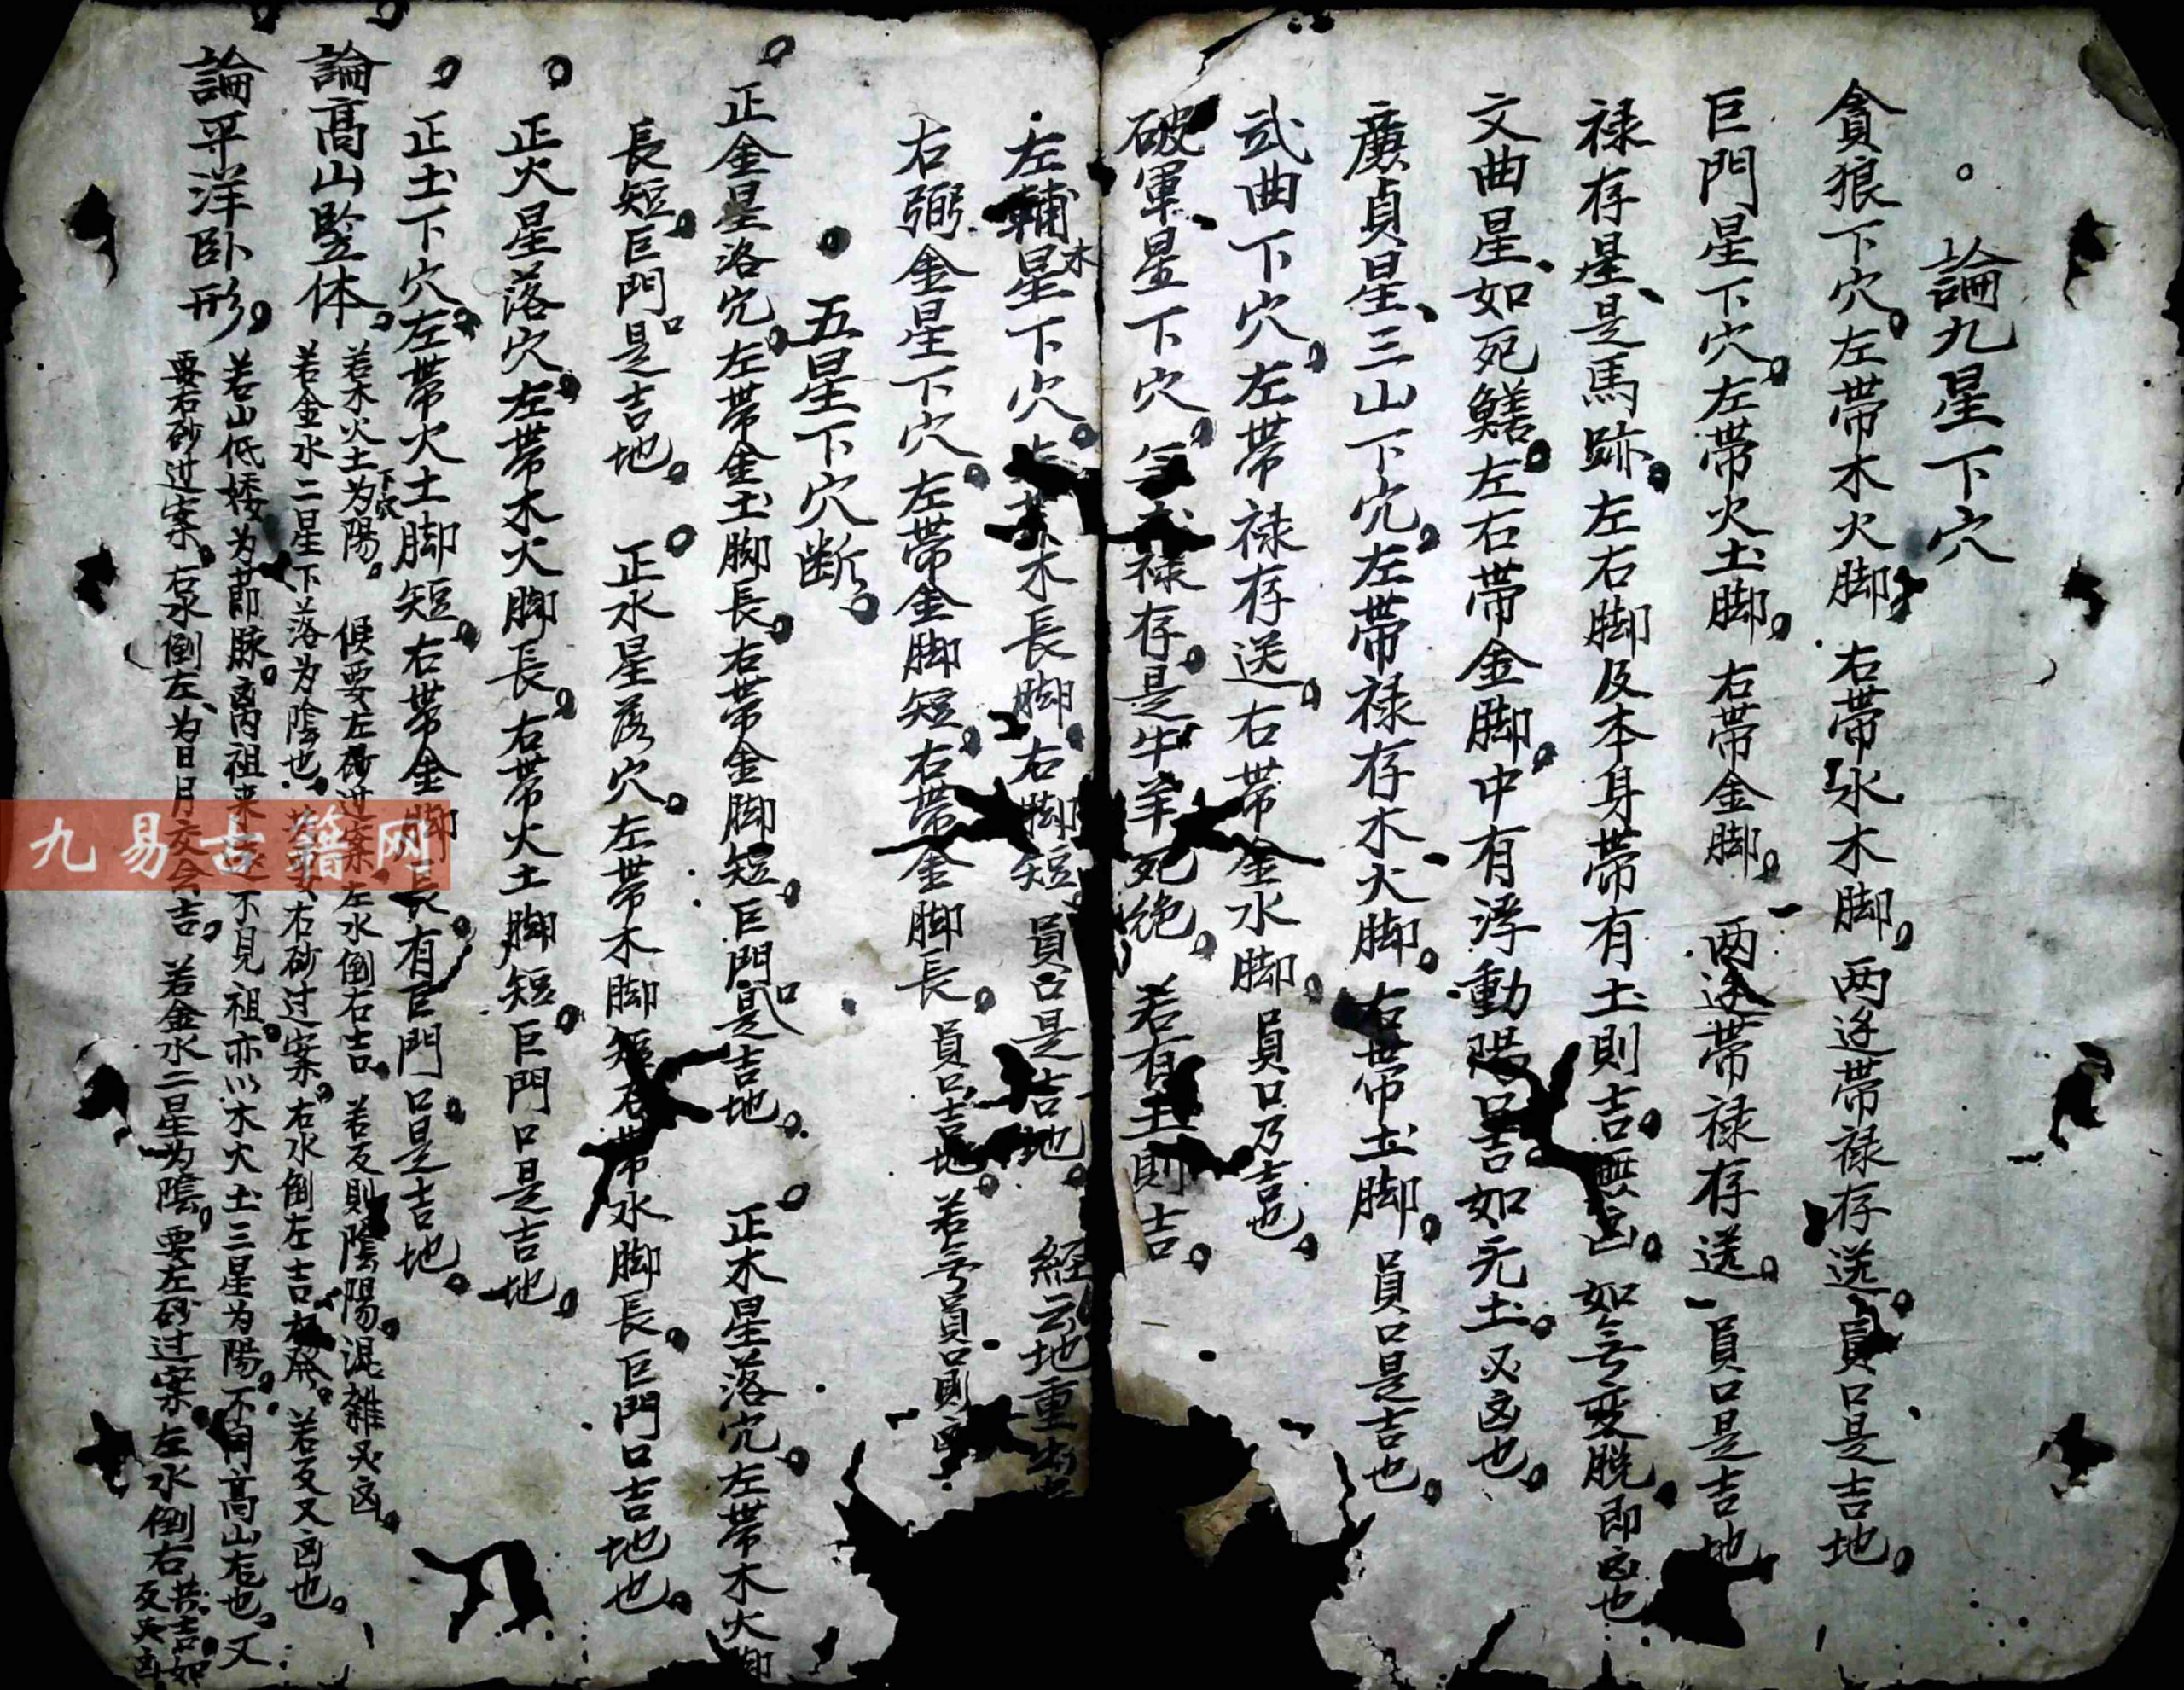 論九星下穴
貪狼下穴左帶木火脚右帶水木脚两边帶禄存送員口是吉地
巨門星下穴左帶火土脚右帶金脚两边帶禄存送員口是吉地
禄存星是馬跡左右脚及本身帶有土則吉無凶如亏变脱即凶也
文曲星如死鱔左右帶金脚中有浮動陽口吉如无土又凶也
廉貞星三山下穴左帶禄存木火脚右帶土脚員口是吉也
武曲下穴左帶禄存送右帶金水脚員口乃吉也
破軍星下穴禄存是牛羊死绝若有土則吉
左輔木星下穴木長脚右脚短員口是吉地經云地重
右弼金星下穴左帶金脚短右帶金脚長員口吉地若亏員口則
五星下穴断
正金星洛穴左帶金土脚長右帶金脚短巨門口是吉地正木星落穴左帶木火脚
長短巨門口是吉地正水星落穴左帶木脚短右帶水脚長巨門口吉地也
正火星落穴左帶木火脚長右帶火土脚短巨門口是吉地
正土下穴左帶火土脚短右帶金脚長有巨門口是吉地
論髙山竪体若木火土下穴为陽候要左砂过案左水倒右吉若反則陰陽混雜又凶
若金水二星下落为陰也右砂过案右水倒左吉若反又凶也
論平洋卧形若山低矮为節脉离祖来不見祖亦以木火土三星为陽不用高山右也又
要右砂过案右水倒左为日月交合吉若金水二星为陰要左砂过案左水倒右共吉如反共凶
九易古籍网